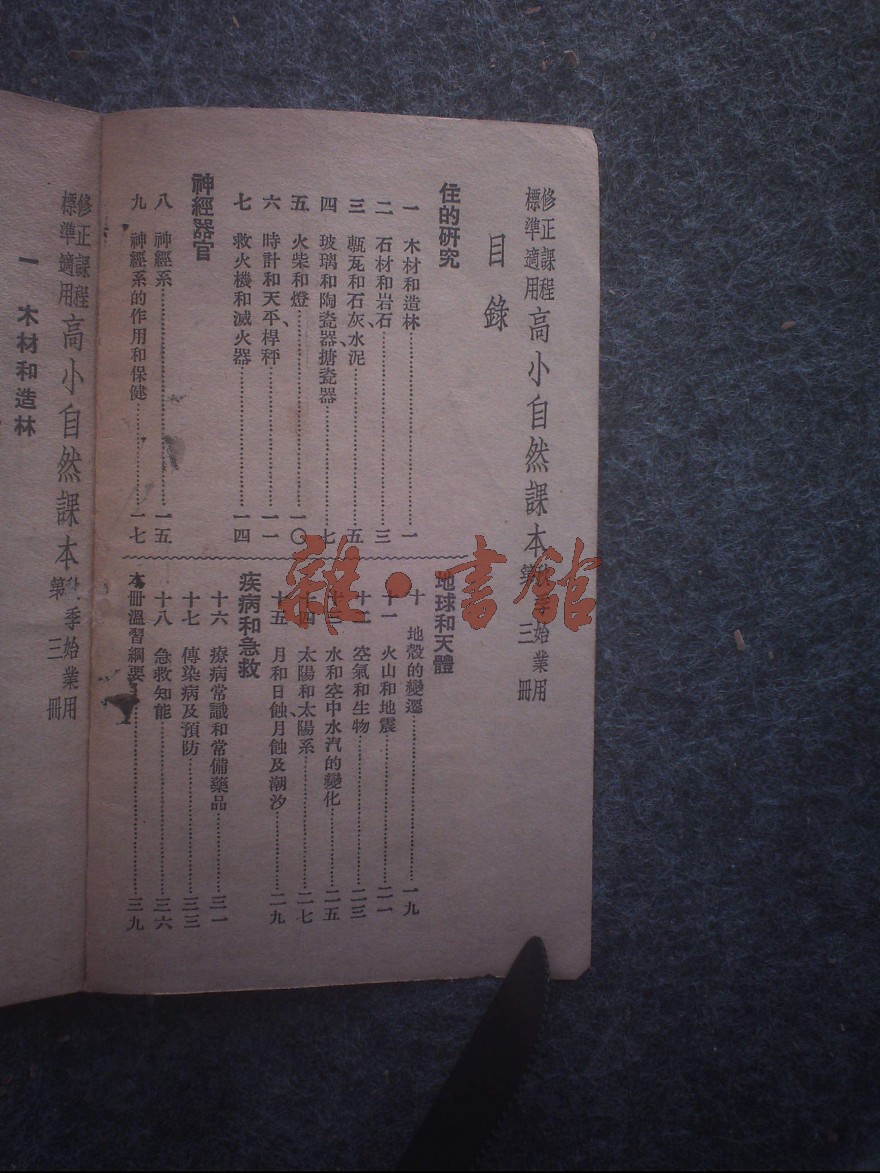 修正課程
標準適用
高小自然課本
秋季始業用
第三冊
目錄
住的研究
一 木材和造林 一
二 石材和岩石 三
三 甎瓦和石灰、水泥 五
四 玻璃和陶瓷器、搪瓷器 七
五 火柴和燈 一〇
六 時計和天平、桿秤 一一
七 救火機和滅火器 一四
神經器官
八 神經系 一五
九 神經系的作用和保健 一七
地球和天體
十 地殼的變遷 一九
十一 火山和地震 二一
十二 空氣和生物 二三
十三 水和空中水汽的變化 二五
十四 太陽和太陽系 二七
十五 月和日蝕、月蝕及潮汐 二九
疾病和急救
十六 療病常識和常備藥品 三一
十七 傳染病及預防 三三
十八 急救知能 三六
本冊溫習綱要 三九
修正課程
標準適用
高小自然課本
秋季始業用
第三冊
一 木材和造林
雜·書館